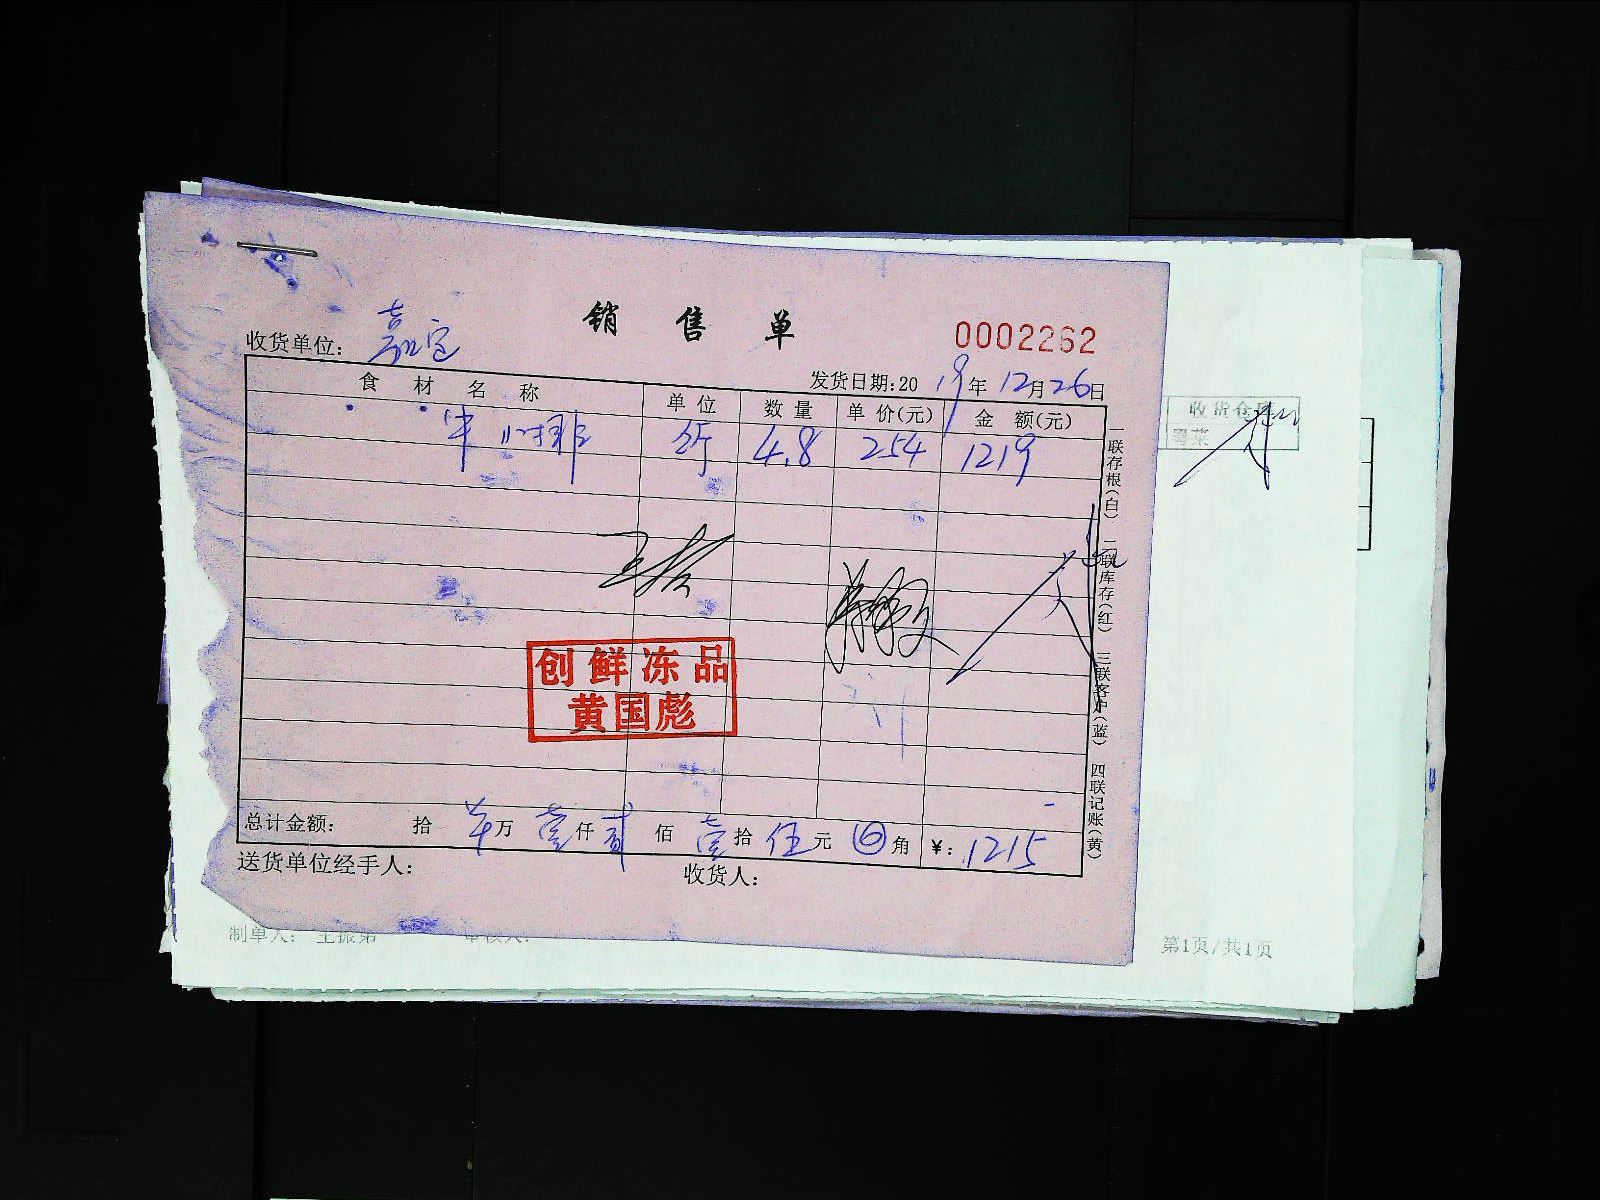 销售单
0002262
收货单位：嘉定
发货日期:2019年12月26日
食材名称 单位 数量 单价(元) 金额(元)
牛小排 斤 4.8 254 1219
创鲜冻品
黄国彪
总计金额： 拾 万 壹仟贰佰壹拾伍元 角 ¥：1215
送货单位经手人： 收货人：
一联存根(白) 二联库存(红) 三联客户(蓝) 四联记账(黄)
收货仓库
粤菜
制单人： 审核人：
第1页/共1页